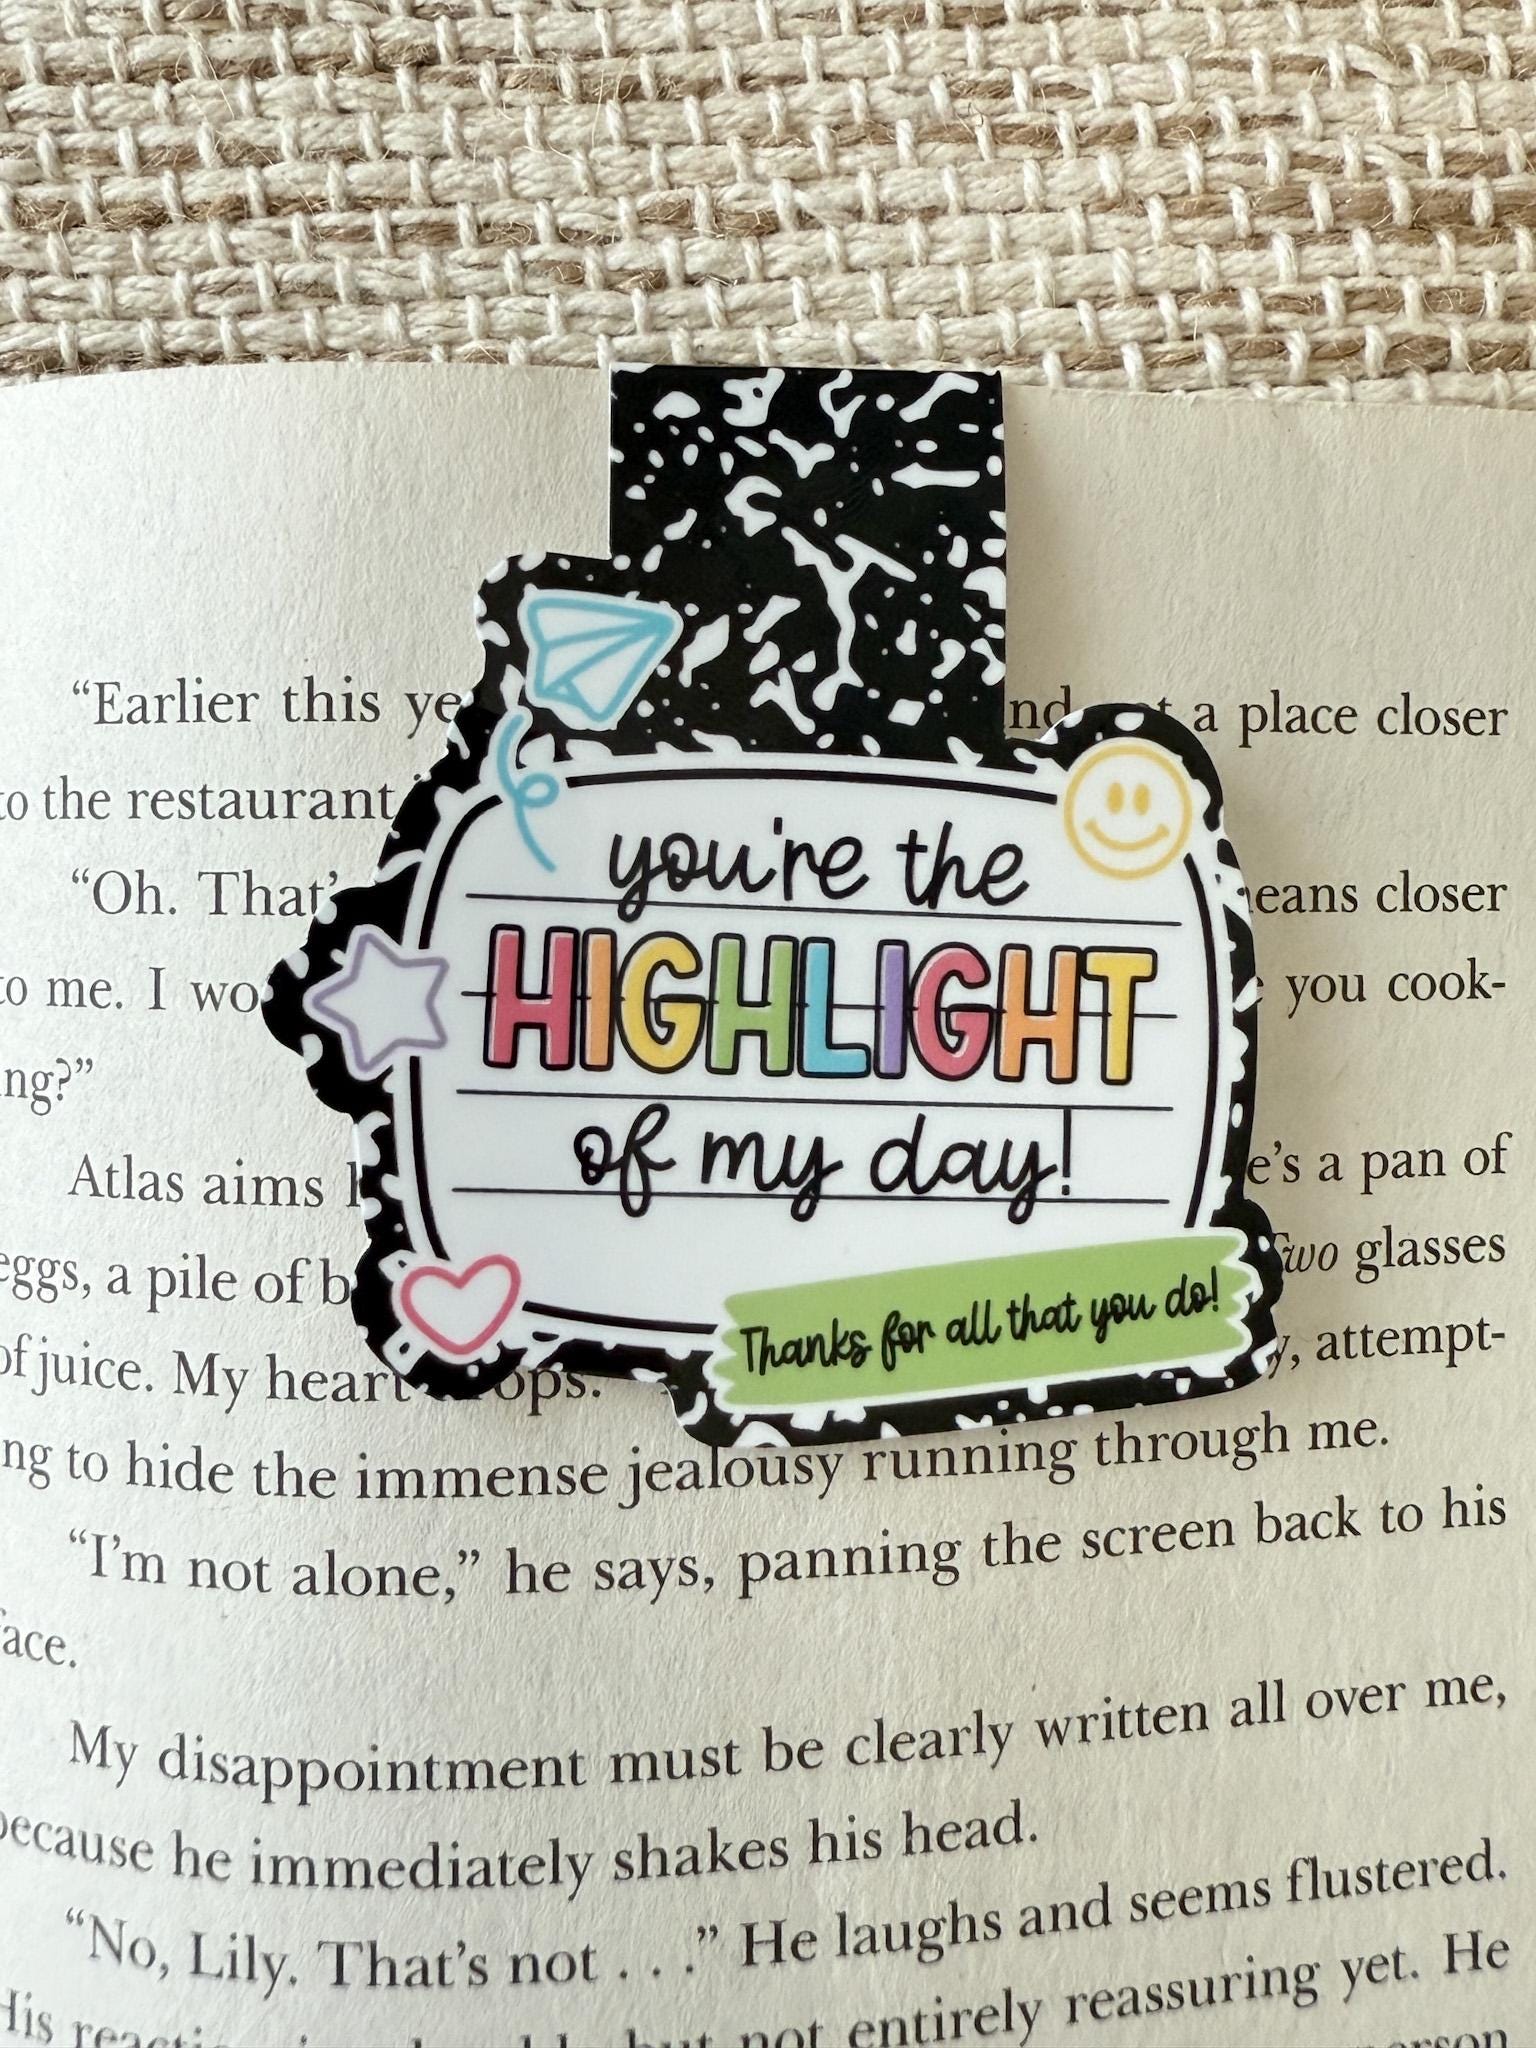 “Earlier this ye
a place closer
to the restaurant
“Oh. That’
means closer
to me. I wo
you cook-
ing?”
you're the
HIGHLIGHT
of my day!
Thanks for all that you do!
Atlas aims
e’s a pan of
eggs, a pile of b
Two glasses
of juice. My heart
ops.
y, attempt-
ng to hide the immense jealousy running through me.
“I’m not alone,” he says, panning the screen back to his
face.
My disappointment must be clearly written all over me,
because he immediately shakes his head.
“No, Lily. That’s not . . .” He laughs and seems flustered.
His
but not entirely reassuring yet. He